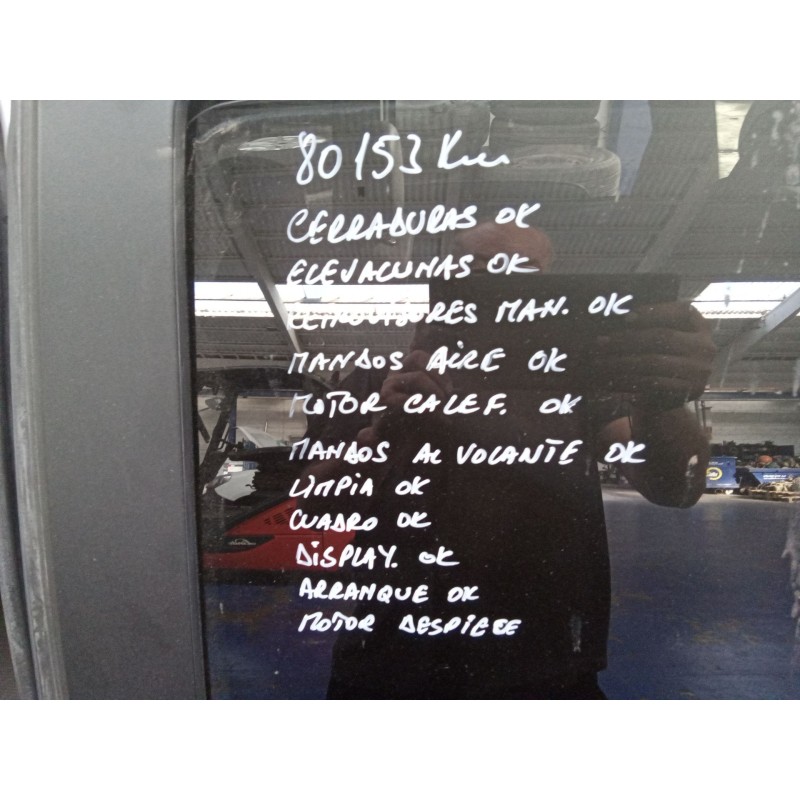 80153 Km
CERRADURAS OK
ELEVALUNAS OK
RETROVISORES MAN. OK
MANDOS AIRE OK
MOTOR CALEF. OK
MANDOS AL VOLANTE OK
LIMPIA OK
CUADRO OK
DISPLAY. OK
ARRANQUE OK
MOTOR DESPIECE